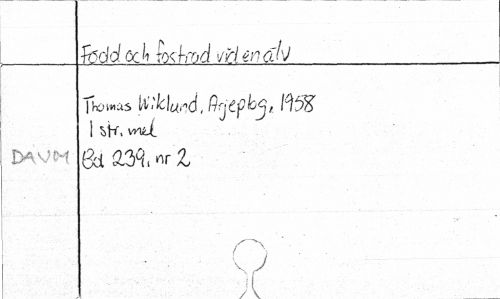 Född och fostrad vid en älv
Thomas Wiklund, Arjeplog, 1958
1 str. mel
DAUM Bd 239, nr 2